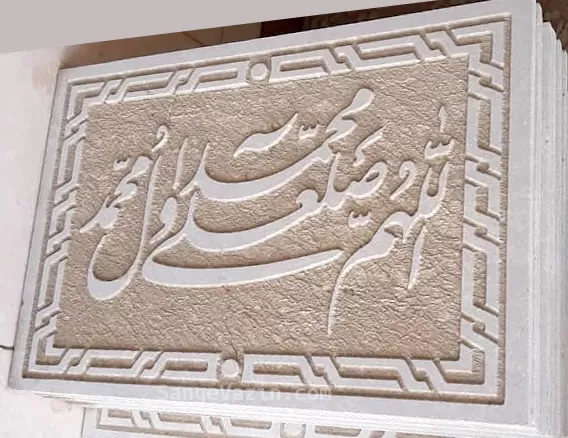 اللهمّ صَل علی محمّد وآل محمّد
SangeVazin.com